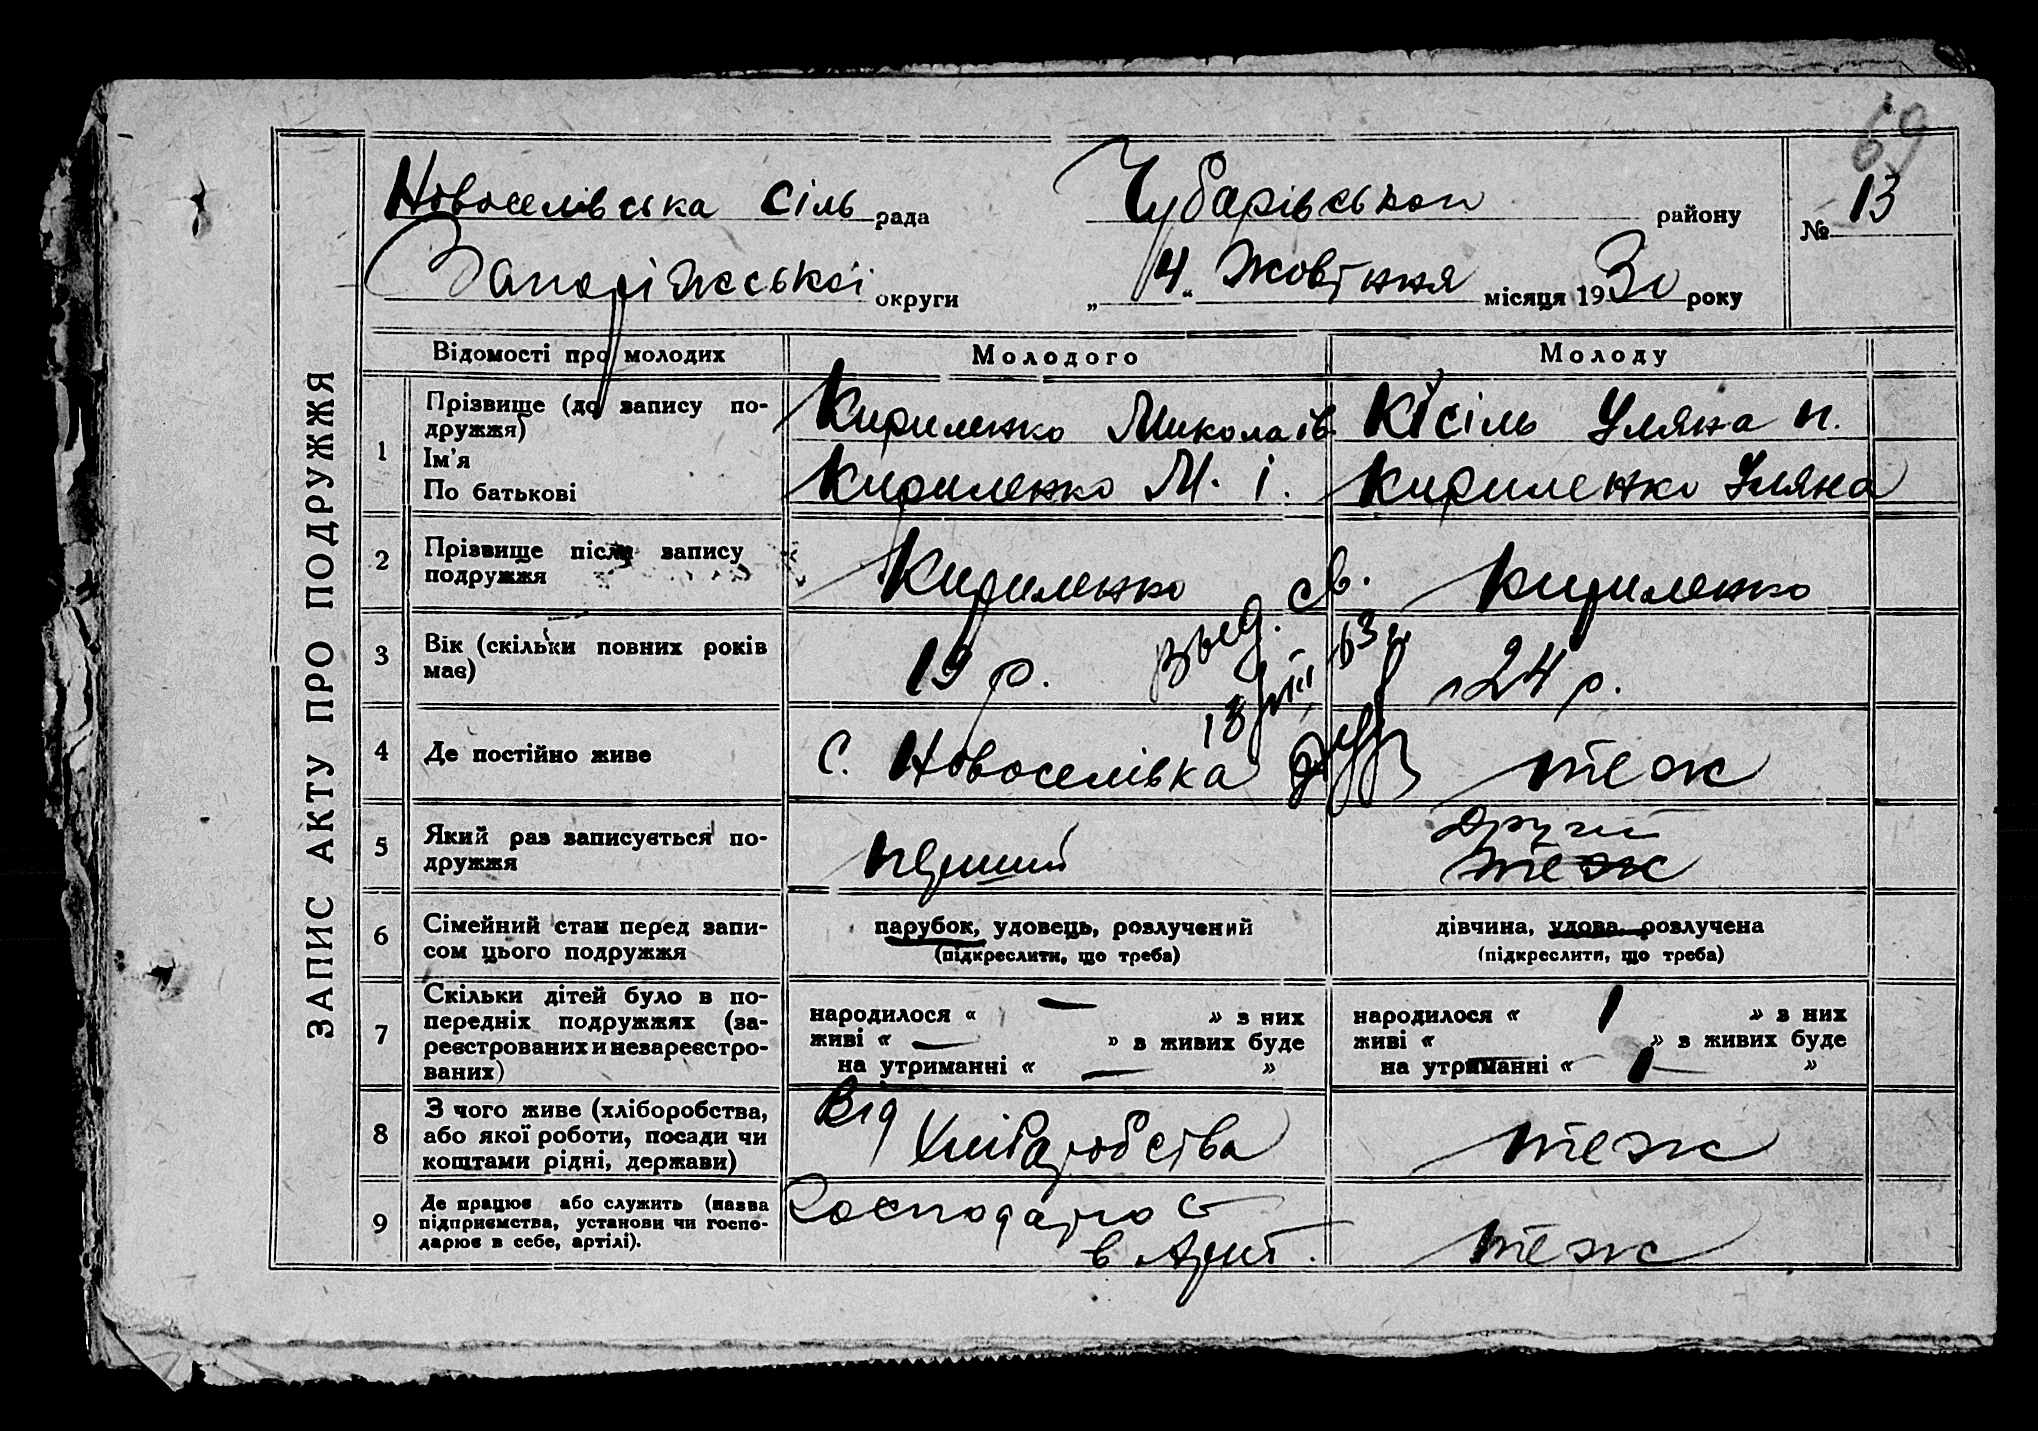 69
Новоселівська сіль рада
Чубарівської району
№ 13
Запоріжської округи
„ 4 “ Жовтння місяця 1930 року
ЗАПИС АКТУ ПРО ПОДРУЖЖЯ
Відомості про молодих
Молодого
Молоду
1
Прізвище (до запису по-
дружжя)
Ім’я
По батькові
Кириленко Миколаів
Кириленко М. і.
Кісіль Уляна п.
Кириленко Уляна
2
Прізвище після запису
подружжя
Кириленко
Кириленко
выд. св.
3
Вік (скільки повних років
має)
19 р.
24 р.
4
Де постійно живе
с. Новоселівка
теж
5
Який раз записується по-
дружжя
перший
другий
теж
6
Сімейний стан перед запи-
сом цього подружжя
парубок, удовець, розлучений
(підкреслити, що треба)
дівчина, удова, розлучена
(підкреслити, що треба)
7
Скільки дітей було в по-
передніх подружжях (за-
реєстрованих и незареєстро-
ваних)
народилося « — » з них
живі « — » в живих буде
на утриманні « — »
народилося « 1 » з них
живі « » в живих буде
на утриманні « 1 »
8
З чого живе (хліборобства,
або якої роботи, посади чи
коштами рідні, держави)
Від
Хліборобства
теж
9
Де працює або служить (назва
підприємства, установи чи госпо-
дарює в себе, артілі).
Господарює
в Арит.
теж